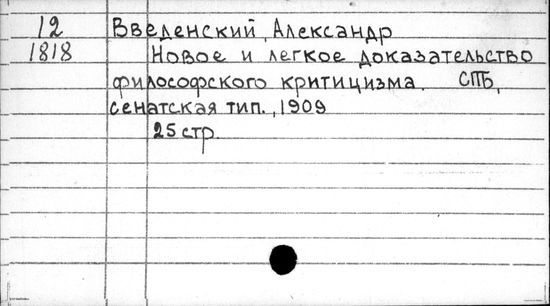 12 Введенский, Александр
1818 Новое и легкое доказательство
философского критицизма. СПБ,
сенатская тип., 1909
25 стр.